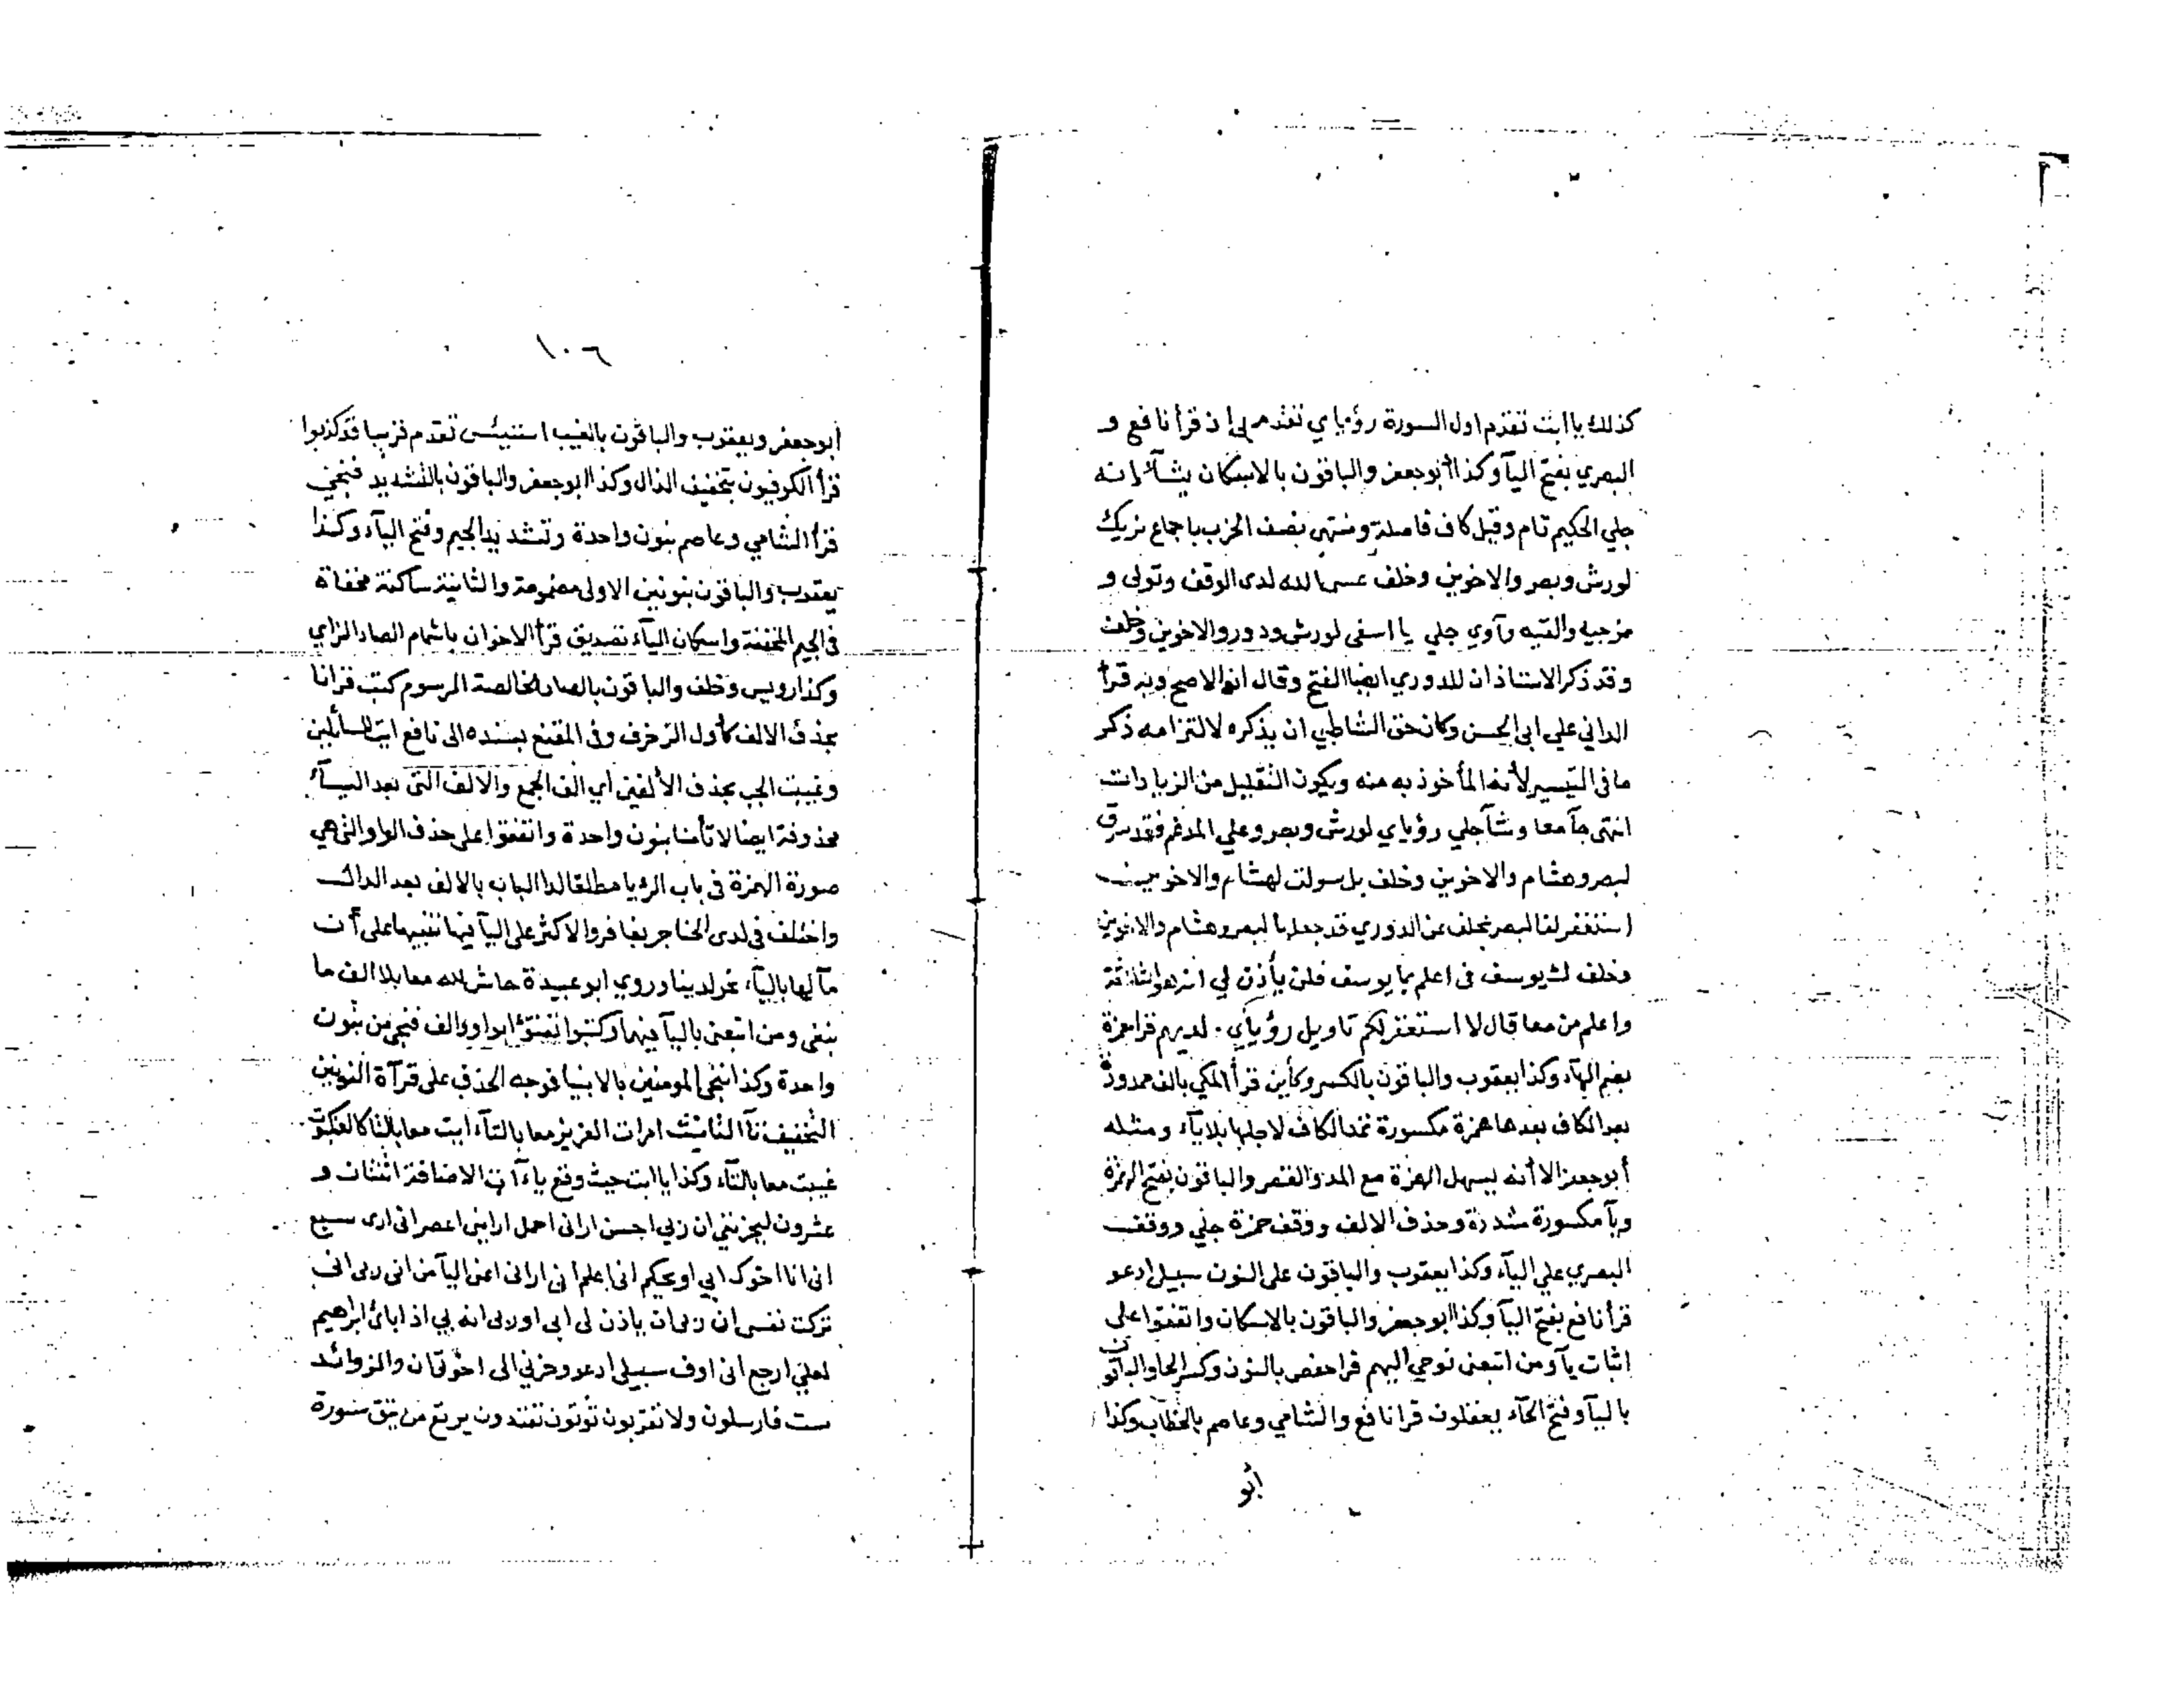 كذلك يا ابت تقدم اول السورة رؤياي تقدم بي إذ قرأ نافع و
البصري بفتح اليآ وكذا أبوجعفر والباقون بالاسكان يشآء انه
جلي الحكيم تام وقيل كاف فاصلة ومنتهى نصف الحزب باجماع نريك
لورش وبصر والاخوين وخلف عسى الله لدى الوقف وتولى و
مزجية والقيه وآوي جلي يا اسفى لورش ودور والاخوين وخلف
وقد ذكر الاستاذان للدوري ايضا الفتح وقال انه الاصح وبه قرأ
الداني علي ابي الحسن وكان حق الشاطبي ان يذكره لالتزامه ذكر
ما في التيسير لأنه المأخوذ به منه ويكون التقليل من الزيادات
انتهى جآ معا وشآ جلي رؤياي لورش وبصر وعلي المدغم فقد سرق
لبصر وهشام والاخوين وخلف بل سولت لهشام والاخوين
استغفر لنا لبصر بخلف عن الدوري قد جعلها لبصر وهشام والاخوين
وخلف ك يوسف في اعلم بما يوسف فلن يأذن لي انه هو ثلاثة
واعلم من معا قال لا استغفر لكم تاويل رؤياي . لديهم قرا حمزة
بضم الهآء وكذا يعقوب والباقون بالكسر وكأين قرأ المكي بالف ممدودة
بعد الكاف بعدها همزة مكسورة تمد الكاف لاجلها بلا يآء ومثله
أبوجعفر الا أنه يسهل الهمزة مع المد والقصر والباقون بفتح الهمزة
ويآ مكسورة مشددة وحذف الالف ووقف حمزة جلي ووقف
البصري علي اليآء وكذا يعقوب والباقون على النون سبيلي ادعو
قرأ نافع بفتح اليآ وكذا ابوجعفر والباقون بالاسكان واتفقوا على
اثبات يآ ومن اتبعني نوحي اليهم قرا حفص بالنون وكسر الحا والباقون
باليآ وفتح الحآء يعقلون قرا نافع والشامي وعاصم بالخطاب وكذا
أبو
١٠٦
أبوجعفر ويعقوب والباقون بالغيب استيئس تقدم قريبا قد كذبوا
قرأ الكوفيون بتخفيف الذال وكذا ابوجعفر والباقون بالتشديد فنجي
قرأ الشامي وعاصم بنون واحدة وتشديد الجيم وفتح اليآء وكذا
يعقوب والباقون بنونين الاولى مضمومة والثانية ساكنة مخفاة
في الجيم المخففة واسكان اليآء تصديق قرأ الاخوان باشمام الصاد الزاي
وكذا رويس وخلف والباقون بالصاد الخالصة المرسوم كتب قرانا
بحذف الالف كأول الزخرف وفي المقنع بسنده الى نافع ايت للسائلين
وغيبت الجب بحذف الألفين أي الف الجمع والالف التي بعد اليآء
محذوفة ايضا لا تأمنا بنون واحدة واتفقوا على حذف الواو التي هي
صورة الهمزة في باب الرؤيا مطلقا لدا الباب بالالف بعد الدال
واختلف في لدى الحناجر بغافر والاكثر على اليآ فيها تنبيها على أن
مآلها باليآء نحو لدينا وروي ابو عبيدة حاش لله معا بلا الف ما
نبغي ومن اتبعني باليآ فيهما وكتبوا تفتؤا بواو والف فنجي من بنون
واحدة وكذا ننجي المومنين بالانبيا فوجه الحذف على قرآة النونين
التخفيف تآ التانيث امرات العزيز معا بالتآء ايت معا بالتا كالعنكبوت
غيبت معا بالتآء وكذا يا ابت حيث وقع ياءآت الاضافة اثنتان و
عشرون ليحزنني ان ربي احسن اراني احمل اراني اعصر اني ارى سبع
اني انا اخوك ابي او يحكم اني اعلم اني اراني اعني اليآ من اني ربي اني
تركت نفسي ان ربي ان ياذن لي ابي او ربي انه بي اذ ابائ ابراهيم
لعلي ارجع اني اوف سبيلي ادعو وحزني الى اخوتي ان والزوائد
ست فارسلون ولا تقربون تؤتون تفندون يرتع من يتق سورة